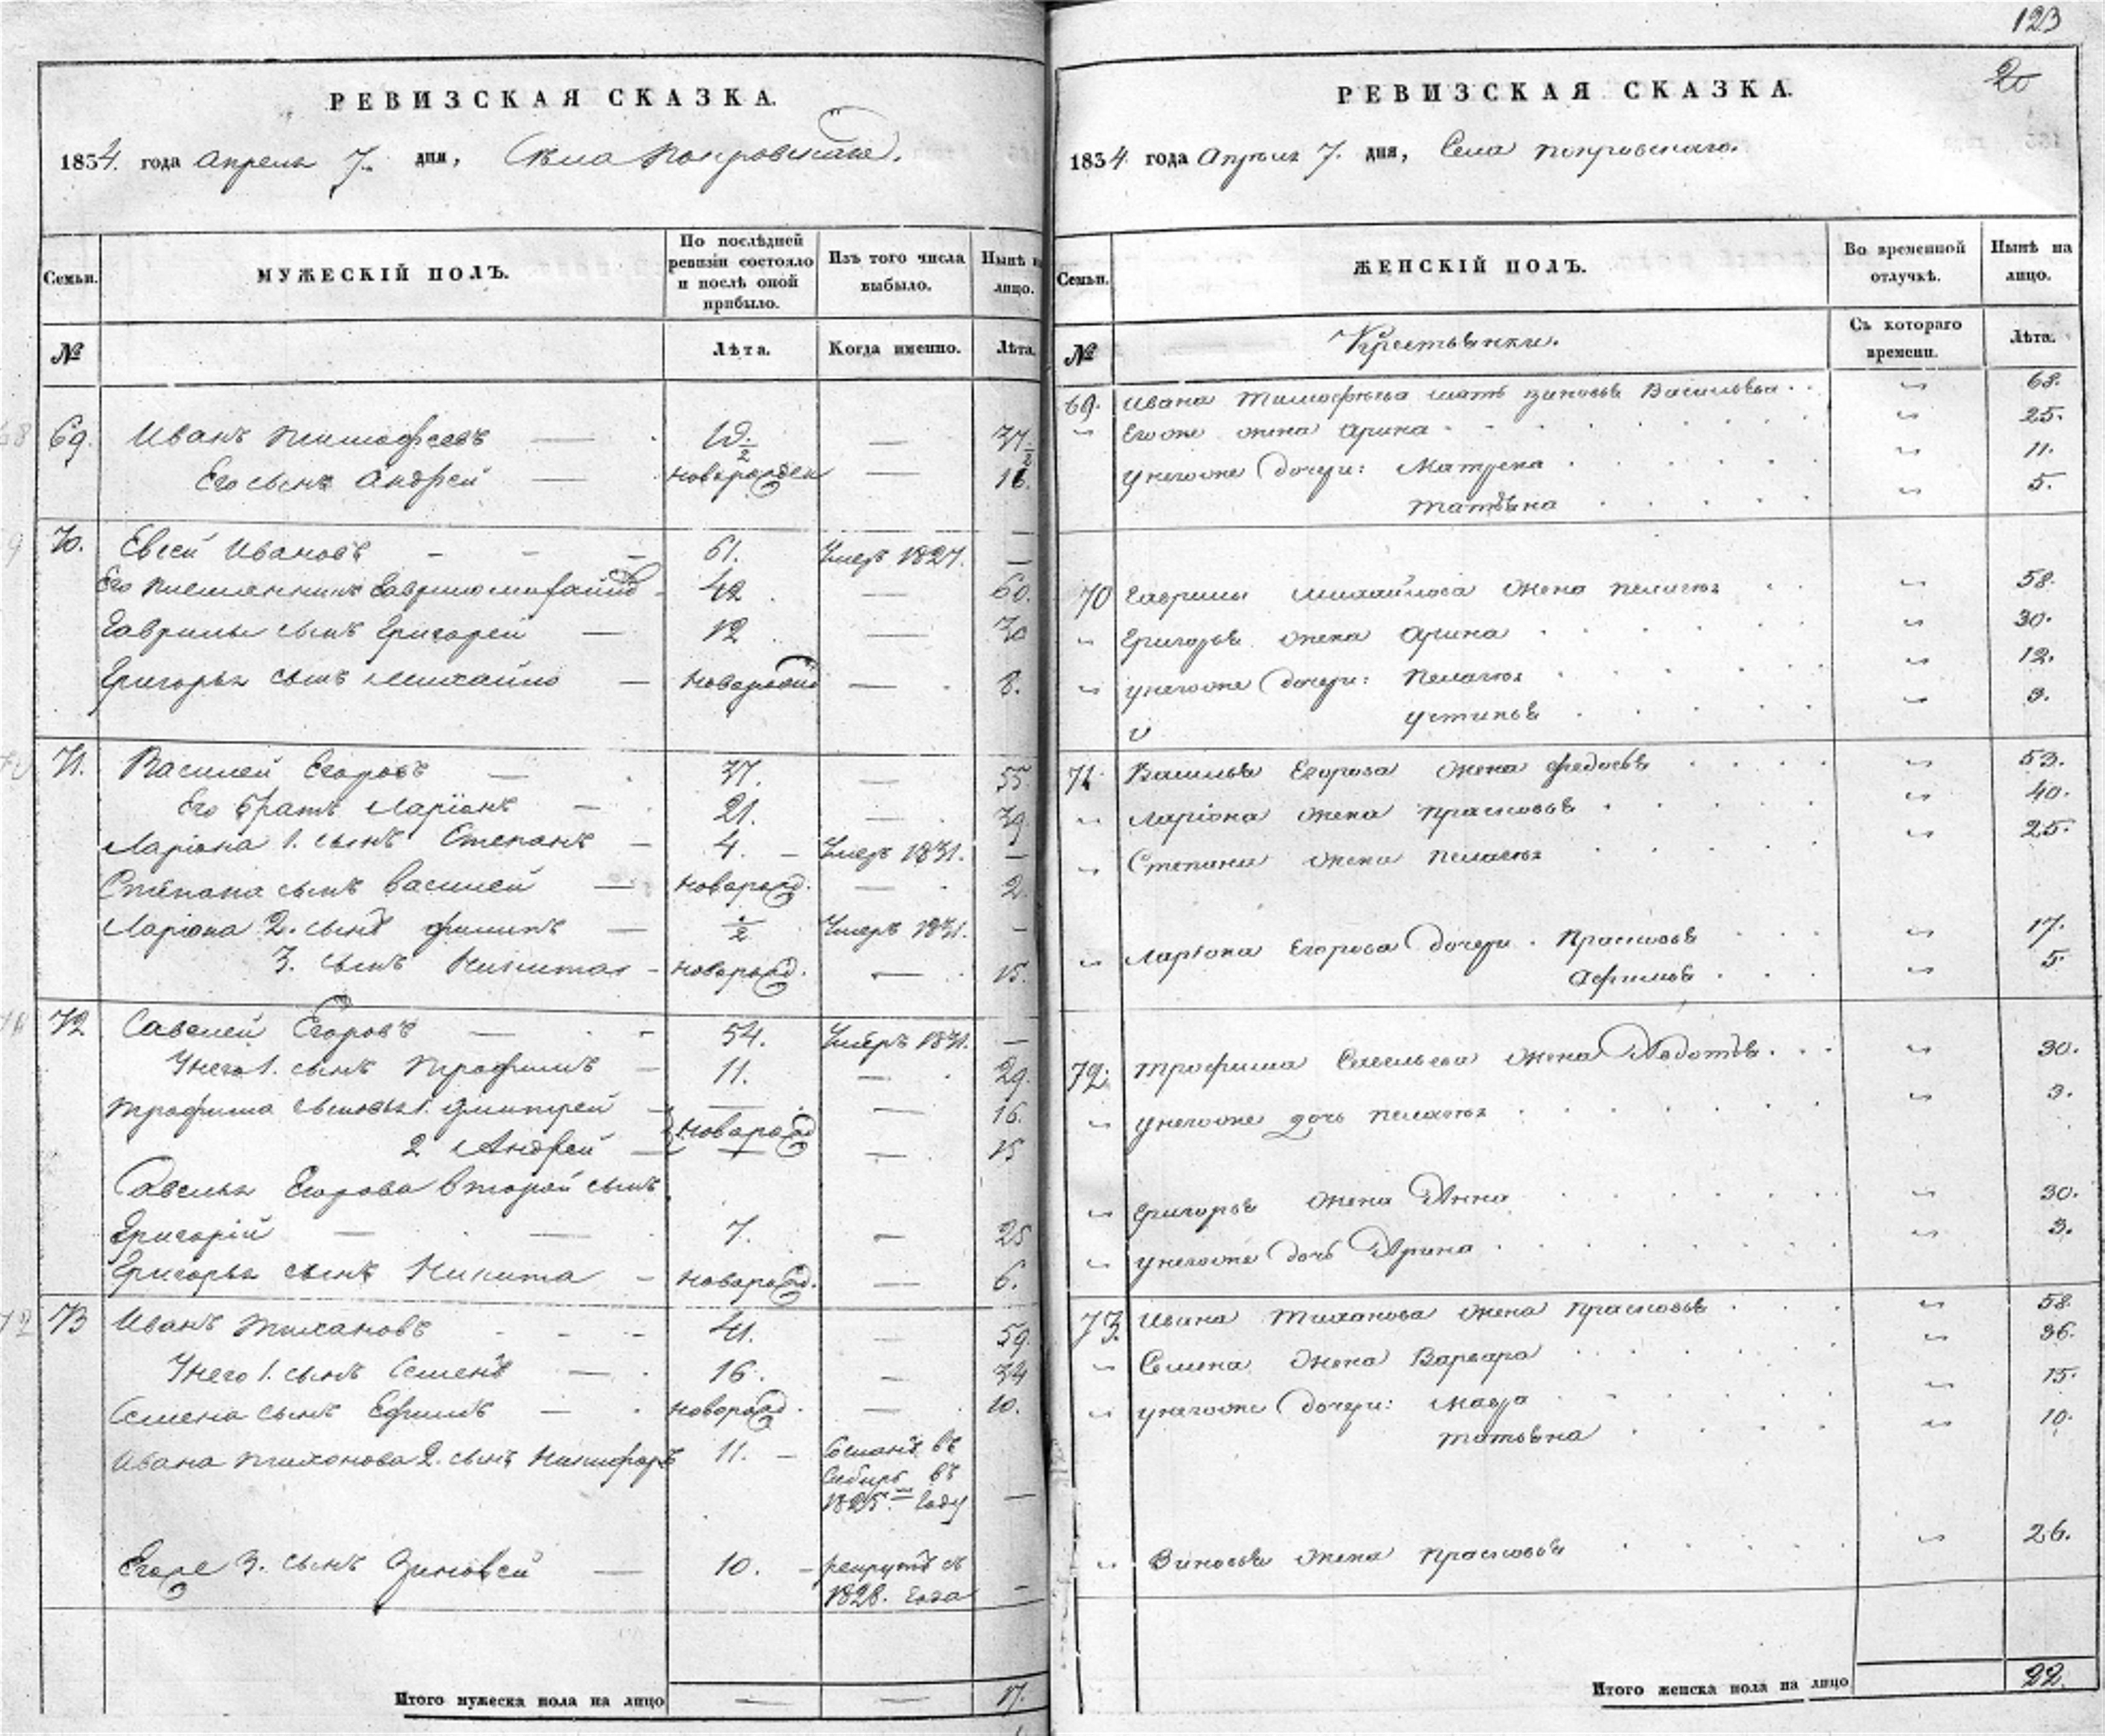 123
20
РЕВИЗСКАЯ СКАЗКА.
1834. года Апреля 7. дня, Села Покровскаго.
Семьи.
МУЖЕСКІЙ ПОЛЪ.
По послѣдней ревизіи состояло и послѣ оной прибыло.
Изъ того числа выбыло.
Нынѣ на лицо.
№
Лѣта.
Когда именно.
Лѣта.
69. Иванъ Тимофеевъ — 19 1/2 — 37 1/2
Его сынъ Андрей — новорожден — 16.
70. Евсей Ивановъ - - - 61. Умеръ 1827. —
Его племянникъ Гаврило Михайлов - 42 — 60.
Гаврилы сынъ Григорей — 12 — 30
Григорья сынъ Михайло — новорожд — 8.
71. Василей Егоровъ — 37. — 55
Его братъ Ларіонъ — 21. — 39
Ларіона 1. сынъ Степанъ — 4. — Умеръ 1831. —
Степана сынъ Василей — новорожд. — 2.
Ларіона 2. сынъ Филипъ — 1/2 Умеръ 1831. -
3. сынъ Никита - новорожд. — 15.
72 Савелей Егоровъ — 54. Умеръ 1831. —
У него 1. сынъ Трофимъ — 11. — 29.
Трофима сыновья 1. Дмитрей — новорожд — 16.
2 Андрей — — 15
Савелья Егорова второй сынъ
Григорій — — 7. — 25
Григорья сынъ Никита — новорожд. — 6.
73 Иванъ Тихановъ - - - 41. — 59.
У него 1. сынъ Семенъ — 16. — 34
Семена сынъ Ефимъ — новорожд. — 10.
Ивана Тихонова 2. сынъ Никифоръ 11. — Сосланъ въ
Сибирь въ
1825.м году —
Егоже 3. сынъ Зиновей — 10. — рекрутъ съ
1828. года -
Итого мужеска пола на лицо — — 17.
РЕВИЗСКАЯ СКАЗКА.
1834. года Апреля 7. дня, Села Покровскаго.
Семьи.
ЖЕНСКІЙ ПОЛЪ.
Во временной отлучкѣ.
Нынѣ на лицо.
№
Крестьянки.
Съ котораго времени.
Лѣта.
69. Ивана Тимофѣева мать Зиновья Васильева . . " 68.
" Егоже жена Арина " 25.
У негоже дочери: Матрена " 11.
Татьяна " 5.
70 Гаврилы Михайлова жена Пелагея " 58.
" Григорья жена Арина " 30.
" У негоже дочери: Пелагея " 12.
Устинья " 9.
71. Василья Егорова жена Федосья " 53.
" Ларіона жена Прасковья " 40.
" Степана жена Пелагея " 25.
" Ларіона Егорова дочери. Прасковья " 17.
Афимья " 5.
72. Трофима Савельева жена Авдотья " 30.
" У негоже дочь Пелагея " 3.
" Григорья жена Анна " 30.
" У негоже дочь Арина " 3.
73. Ивана Тиханова жена Прасковья " 58.
" Семена жена Варвара " 36.
" У негоже дочери: Мавра " 15.
Татьяна " 10.
" Зиновья жена Прасковья " 26.
Итого женска пола на лицо 22.